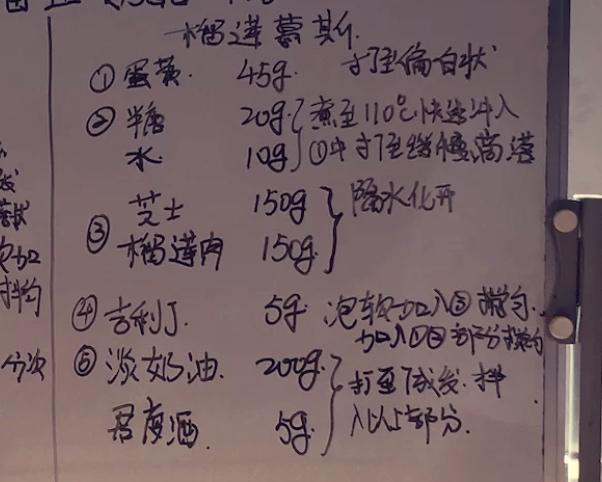 榴莲慕斯.
①蛋黄. 45g. 打至偏白状
②糖 20g. 煮至110℃快速冲入
水. 10g ①中打至缓慢滴落
芝士 150g 隔水化开
③榴莲肉 150g
④吉利丁. 5g. 泡软加入③拌匀.
加入①②部分拌匀
⑤淡奶油. 200g. 打至7成发.拌
君度酒. 5g. 入以上部分.
拌匀
分次